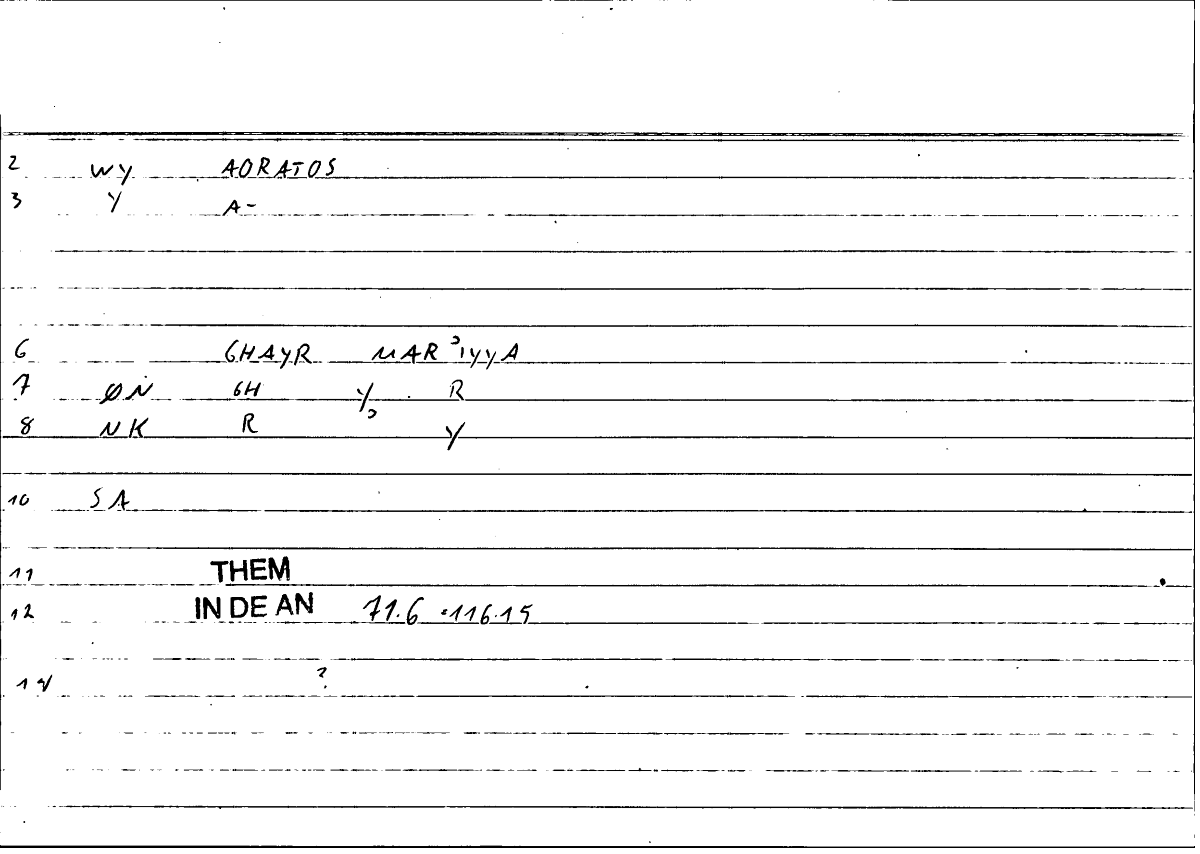 2 WY AORATOS
3 Y A-
6 GHAYR MARʾIYYA
7 ØN GH Yʾ R
8 NK R Y
10 SA
11 THEM
12 IN DE AN 71.6 116.15
14 ?